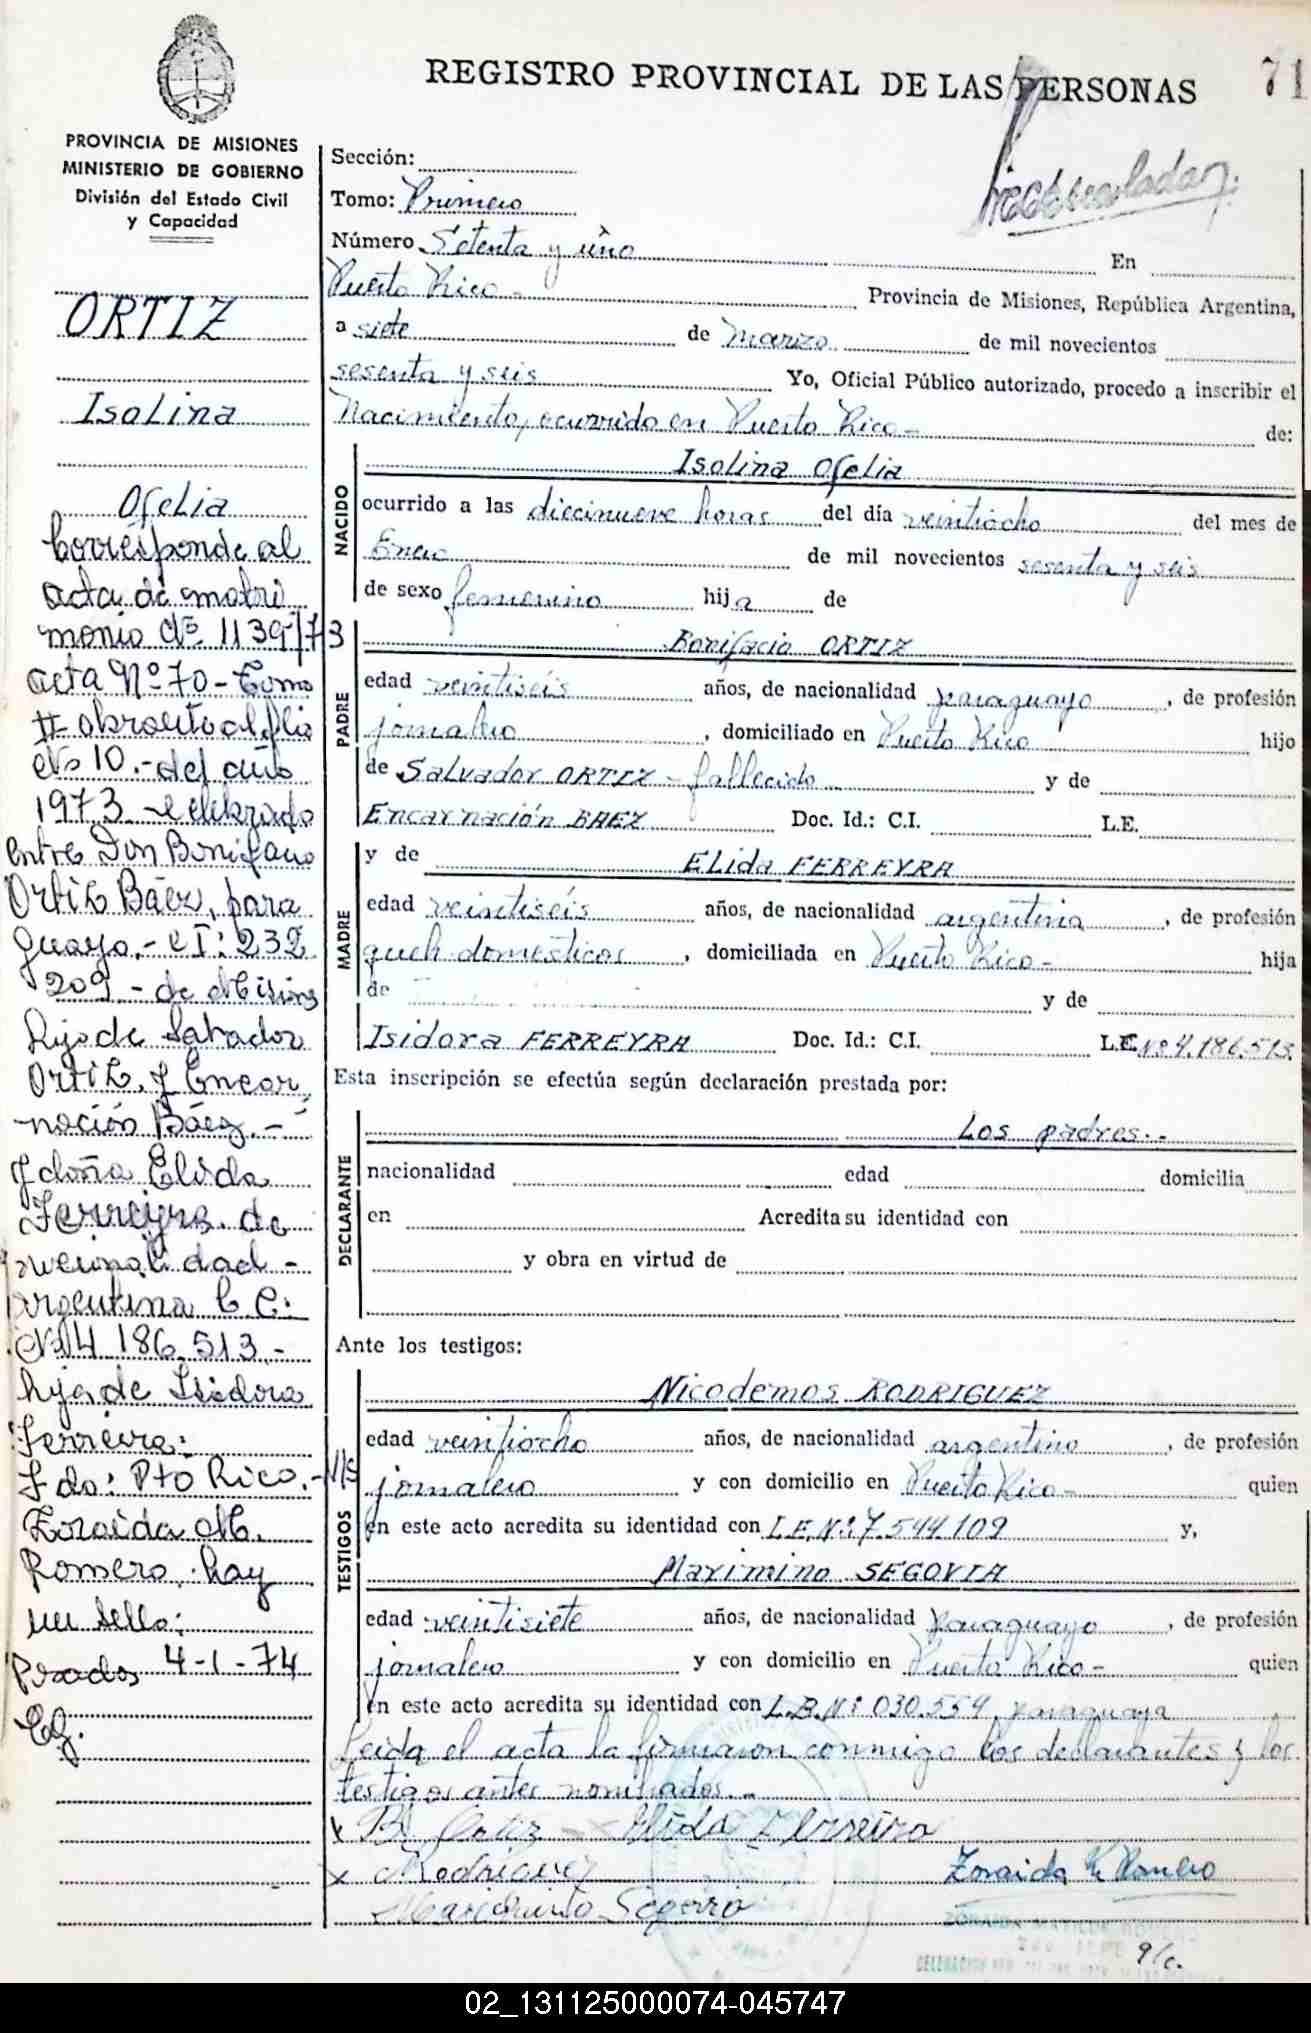 REGISTRO PROVINCIAL DE LAS PERSONAS
71
PROVINCIA DE MISIONES
MINISTERIO DE GOBIERNO
División del Estado Civil
y Capacidad
ORTIZ
Isolina
Ofelia
Corresponde al
acta de matri
monio Nº 1139/73
acta Nº 70 - Tomo
II obrante al folio
Nº 10.- del año
1973 celebrado
entre Don Bonifacio
Ortiz Báez, para
guayo.- CI: 232
209 - de Misiones
Hijo de Salvador
Ortiz y Encar
nación Báez.-
y doña Elida
Ferreyra de
nacionalidad -
argentina L C:
Nº 4 186 513.-
hija de Isidora
Ferreira:
Fdo: Pto Rico.-
Zoraida M.
Romero: hay
un sello:
Posadas 4-1-74
Sección:
Tomo: Primero
Número Setenta y uno En
Puerto Rico - Provincia de Misiones, República Argentina,
a siete de marzo de mil novecientos
sesenta y seis Yo, Oficial Público autorizado, procedo a inscribir el
Nacimiento, ocurrido en Puerto Rico - de:
NACIDO
Isolina Ofelia
ocurrido a las diecinueve horas del día veintiocho del mes de
Enero de mil novecientos sesenta y seis
de sexo femenino hija de
PADRE
Bonifacio ORTIZ
edad veintiseis años, de nacionalidad paraguayo, de profesión
jornalero, domiciliado en Puerto Rico hijo
de Salvador ORTIZ - fallecido y de
Encarnación BAEZ Doc. Id.: C.I. L.E.
MADRE
y de Elida FERREYRA
edad veintiseis años, de nacionalidad argentina, de profesión
queh. domesticos, domiciliada en Puerto Rico - hija
de y de
Isidora FERREYRA Doc. Id.: C.I. L.C. Nº 4.186.513
Esta inscripción se efectúa según declaración prestada por:
DECLARANTE
Los padres.-
nacionalidad edad domicilia
en Acredita su identidad con
y obra en virtud de
Ante los testigos:
TESTIGOS
Nicodemos RODRIGUEZ
edad veintiocho años, de nacionalidad argentino, de profesión
jornalero y con domicilio en Puerto Rico - quien
en este acto acredita su identidad con L.E.Nº: 7.544.109 y,
Maximino SEGOVIA
edad veintisiete años, de nacionalidad paraguayo, de profesión
jornalero y con domicilio en Puerto Rico - quien
en este acto acredita su identidad con L.B.Nº: 030.554, paraguaya
Leida el acta la firmaron conmigo los declarantes y los
testigos antes nombrados.-
x B. Ortiz - x Elida Ferreira
x Rodriguez
Zoraida M. Romero
9/c.
02_131125000074-045747